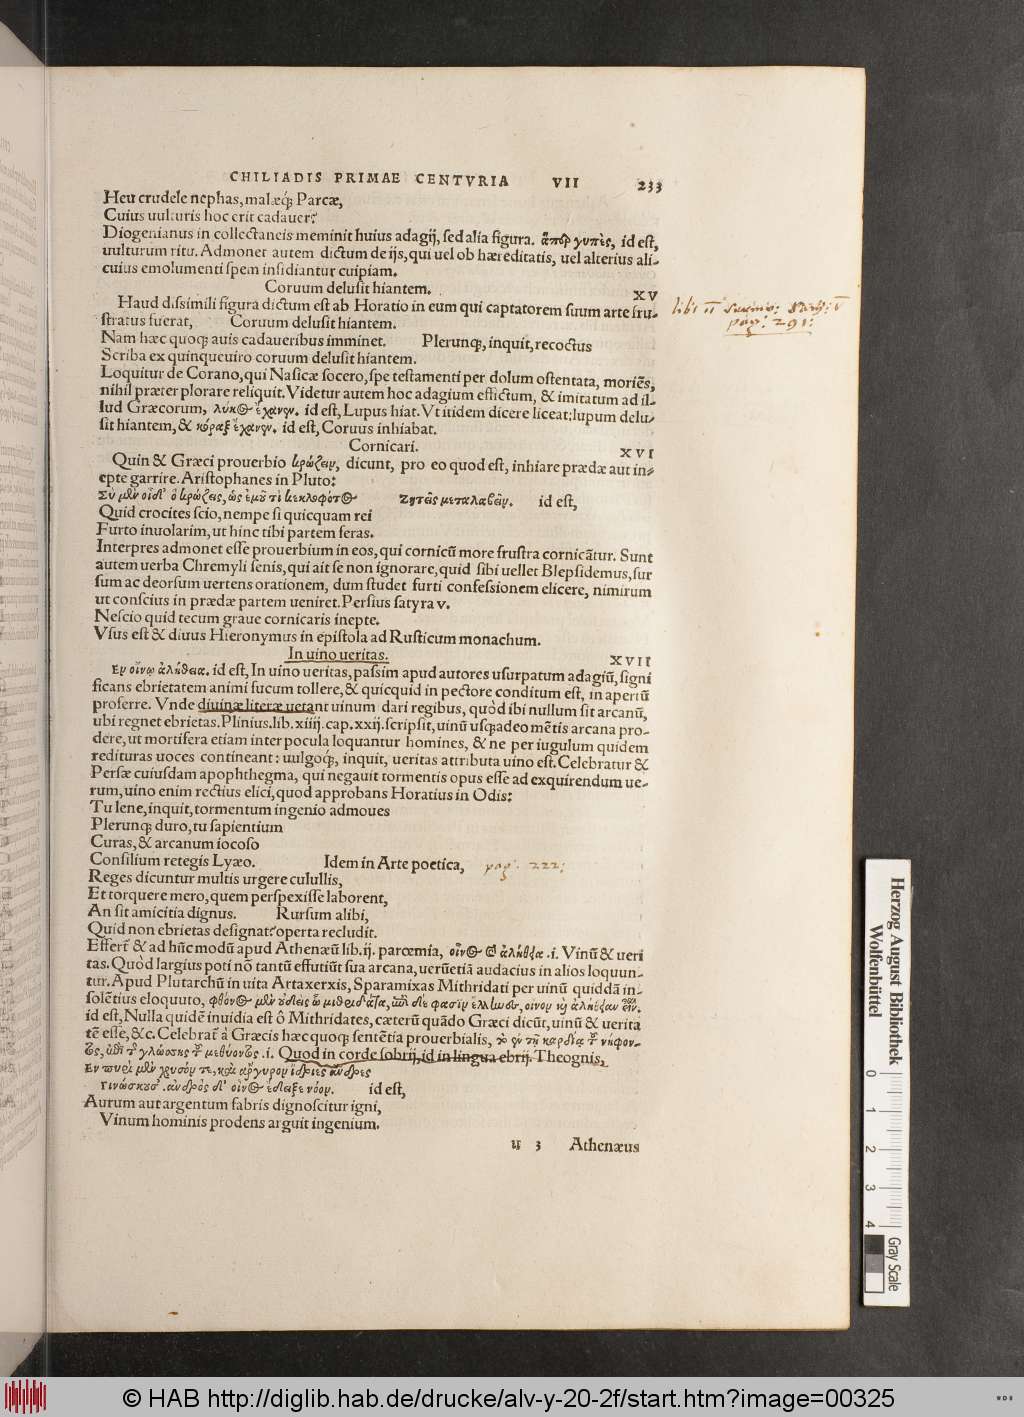 CHILIADIS PRIMAE CENTVRIA VII 233
Heu crudele nephas, malæq́; Parcæ,
Cuius uulturis hoc erit cadauer?
Diogenianus in collectaneis meminit huius adagij, sed alia figura. ἅπερ γυπὲς, id est,
uulturum ritu. Admonet autem dictum de ijs, qui uel ob hæreditatis, uel alterius ali-
cuius emolumenti spem insidiantur cuipiam.
Coruum delusit hiantem. XV
Haud dissimili figura dictum est ab Horatio in eum qui captatorem suum arte fru-
stratus fuerat, Coruum delusit hiantem.
Nam hæc quoq; auis cadaueribus imminet. Plerunq;, inquit, recoctus
Scriba ex quinqueuiro coruum delusit hiantem.
Loquitur de Corano, qui Nasicæ socero, spe testamenti per dolum ostentata, moriẽs,
nihil præter plorare reliquit. Videtur autem hoc adagium effictum, & imitatum ad il-
lud Græcorum, λύκος ἔχανεν. id est, Lupus hiat. Vt itidem dicere liceat: lupum delu-
sit hiantem, & κόραξ ἔχανεν. id est, Coruus inhiabat.
Cornicari. XVI
Quin & Græci prouerbio κρώζειν, dicunt, pro eo quod est, inhiare prædæ aut in-
epte garrire. Aristophanes in Pluto:
Σὺ μὲν οἶδ' ὃ κρώζεις, ὡς ἐμοῦ τι κεκλοφότος Ζητεῖς μεταλαβεῖν. id est,
Quid crocites scio, nempe si quicquam rei
Furto inuolarim, ut hinc tibi partem feras.
Interpres admonet esse prouerbium in eos, qui cornicũ more frustra cornicãtur. Sunt
autem uerba Chremyli senis, qui ait se non ignorare, quid sibi uellet Blepsidemus, sur
sum ac deorsum uertens orationem, dum studet furti confessionem elicere, nimirum
ut conscius in prædæ partem ueniret. Persius satyra v.
Nescio quid tecum graue cornicaris inepte.
Vsus est & diuus Hieronymus in epistola ad Rusticum monachum.
In uino ueritas. XVII
Ἐν οἴνῳ ἀλήθεια. id est, In uino ueritas, passim apud autores usurpatum adagiũ, signi
ficans ebrietatem animi fucum tollere, & quicquid in pectore conditum est, in apertũ
proferre. Vnde diuinæ literæ uetant uinum dari regibus, quòd ibi nullum sit arcanũ,
ubi regnet ebrietas. Plinius. lib. xiiij. cap. xxij. scripsit, uinũ usq; adeo mẽtis arcana pro-
dere, ut mortifera etiam inter pocula loquantur homines, & ne per iugulum quidem
redituras uoces contineant: uulgoq́;, inquit, ueritas attributa uino est. Celebratur &
Persæ cuiusdam apophthegma, qui negauit tormentis opus esse ad exquirendum ue-
rum, uino enim rectius elici, quod approbans Horatius in Odis:
Tu lene, inquit, tormentum ingenio admoues
Plerunq; duro, tu sapientium
Curas, & arcanum iocoso
Consilium retegis Lyæo. Idem in Arte poetica, pag. 222:
Reges dicuntur multis urgere culullis,
Et torquere mero, quem perspexisse laborent,
An sit amicitia dignus. Rursum alibi,
Quid non ebrietas designat? operta recludit.
Effert̃ & ad hũc modũ apud Athenæũ lib. ij. parœmia, οἶνος καὶ ἀλήθεια .i. Vinũ & ueri
tas. Quòd largius poti nõ tantũ effutiũt sua arcana, uerũetiã audacius in alios loquun-
tur. Apud Plutarchũ in uita Artaxerxis, Sparamixas Mithridati per uinũ quiddã in-
solẽtius eloquuto, φθόνος μὲν οὐδεὶς ὦ μιθριδάτα,
id est, Nulla quidẽ inuidia est ô Mithridates, cæterũ quãdo Græci dicũt, uinũ & uerita
tẽ esse, &c. Celebrat̃ à Græcis hæc quoq; sentẽtia prouerbialis, τὸ ἐν τῇ καρδίᾳ τοῦ νήφον-
τος, ἐπὶ τῆς γλώσσης τοῦ μεθύοντος .i. Quod in corde sobrij, id in lingua ebrij. Theognis,
Ἐν πυρὶ μὲν χρυσόν τε, καὶ ἄργυρον ἴδριες ἄνδρες
Γινώσκουσ'. ἀνδρὸς δ' οἶνος ἔδειξε νόον. id est,
Aurum aut argentum fabris dignoscitur igni,
Vinum hominis prodens arguit ingenium.
u 3 Athenæus
pag: 291:
Herzog August Bibliothek
Wolfenbüttel
0 1 2 3 4
Gray Scale
© HAB http://diglib.hab.de/drucke/alv-y-20-2f/start.htm?image=00325